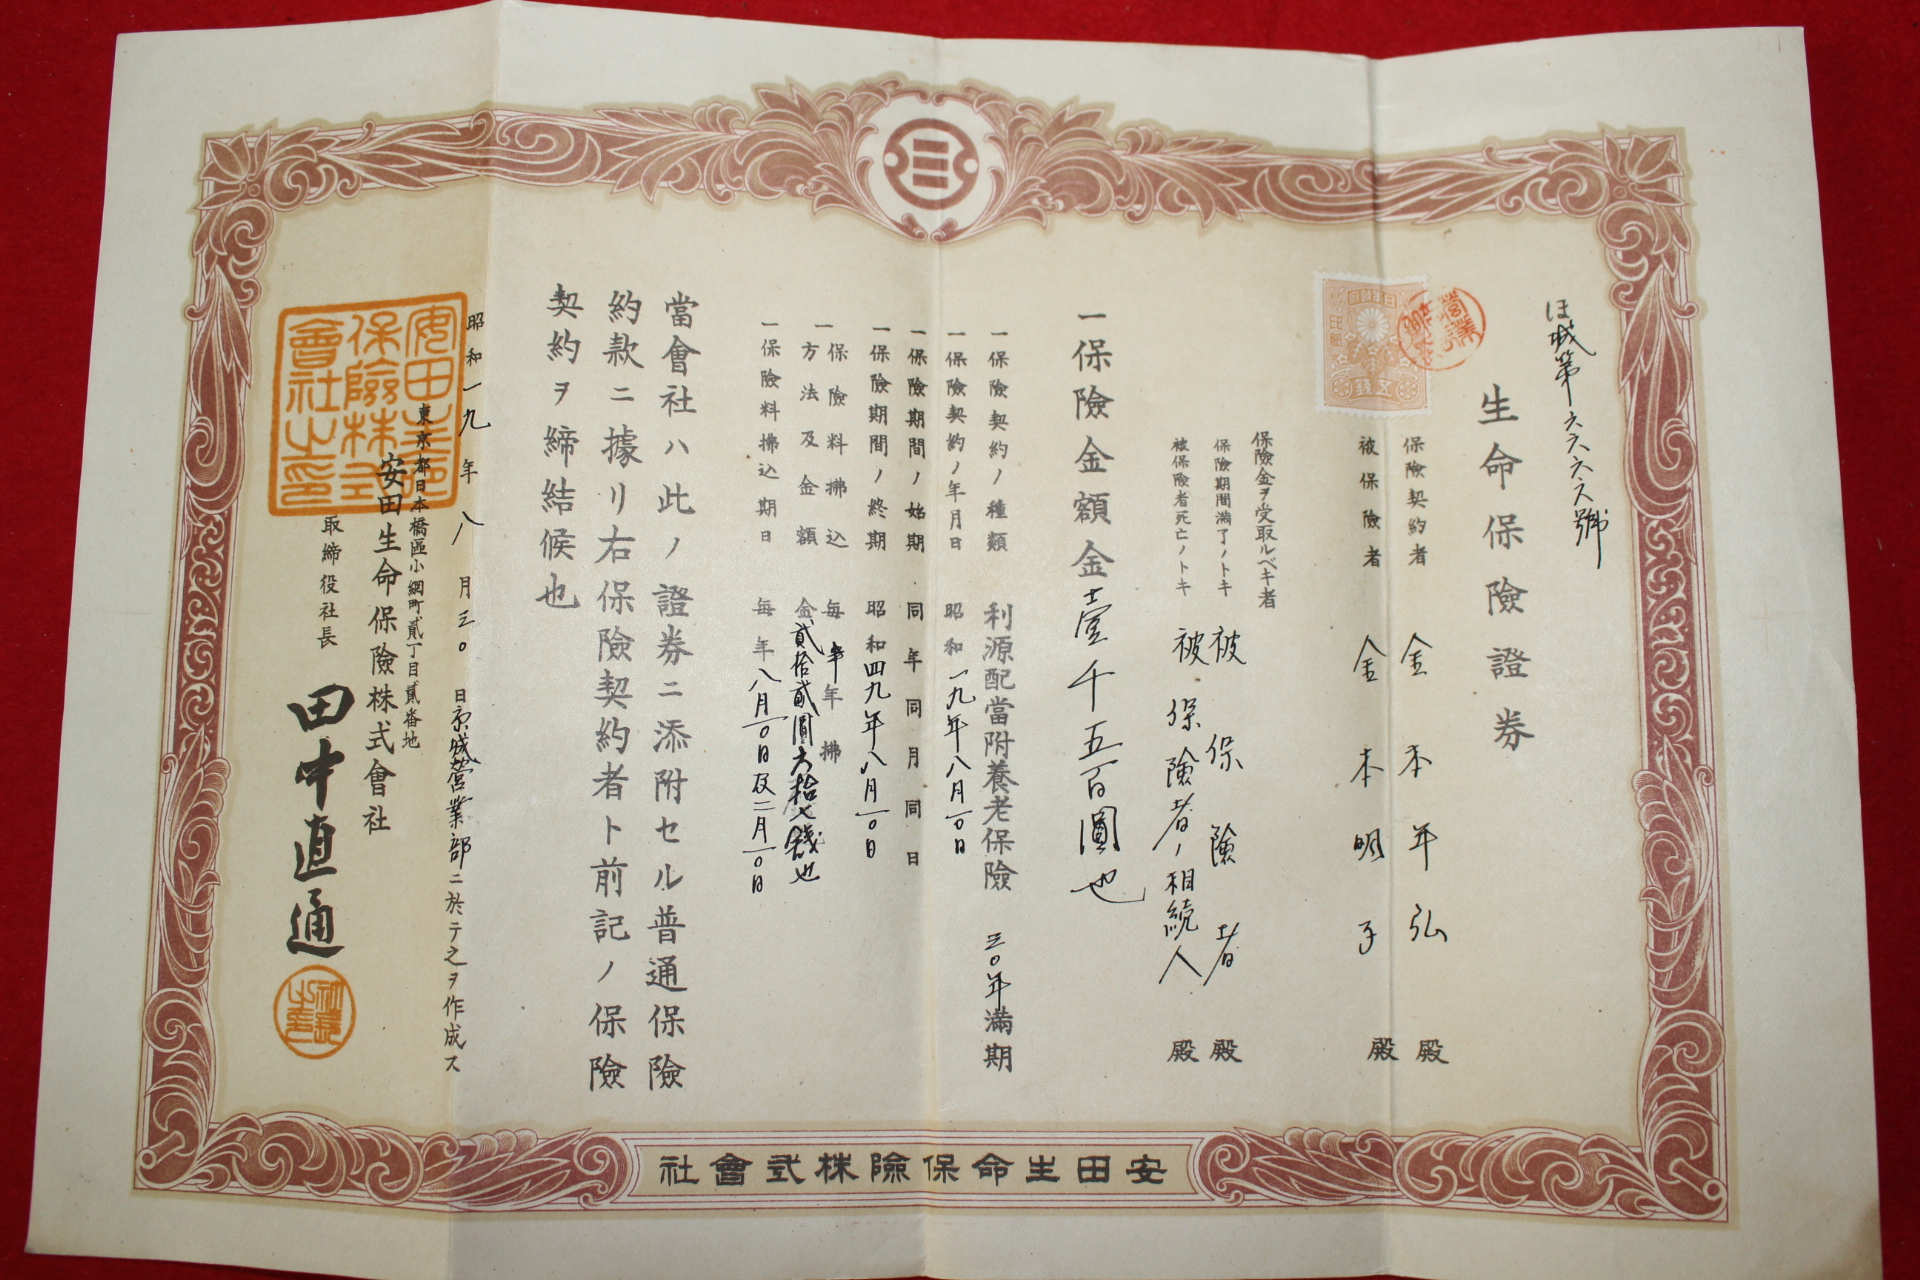 ほ城第六六六六號
生命保險證券
保險契約者 金本年弘 殿
被保險者 金本明子 殿
保險金ヲ受取ルベキ者
保險期間滿了ノトキ 被保險者 殿
被保險者死亡ノトキ 被保險者ノ相続人 殿
一保險金額金壹千五百圓也
一保險契約ノ種類 利源配當附養老保險 三〇年滿期
一保險契約ノ年月日 昭和一九年八月一〇日
一保險期間ノ始期 同年同月同日
一保險期間ノ終期 昭和四九年八月一〇日
一保險料拂込 每半年拂
方法及金額 金貳拾貳圓六拾七錢也
一保險料拂込期日 每年八月一〇日及二月一〇日
當會社ハ此ノ證券ニ添附セル普通保險
約款ニ據リ右保險契約者ト前記ノ保險
契約ヲ締結候也
昭和一九年八月三〇日京城營業部ニ於テ之ヲ作成ス
東京都日本橋區小網町貳丁目貳番地
安田生命保險株式會社
取締役社長 田中直通
安田生命
保險株式
會社之印
社長之印
五錢
安田生命保險株式會社